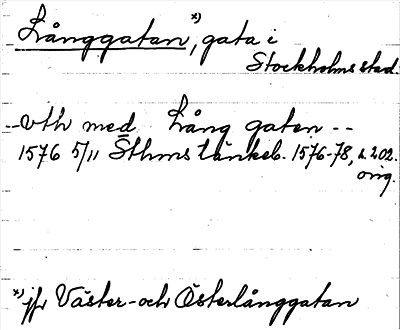 Långgatan *), gata i
Stockholms stad.
-- vth med Lång gaten --
1576 5/11 Sthms tänkeb. 1576-78, s. 202.
orig.
*) jfr Väster- och Österlånggatan